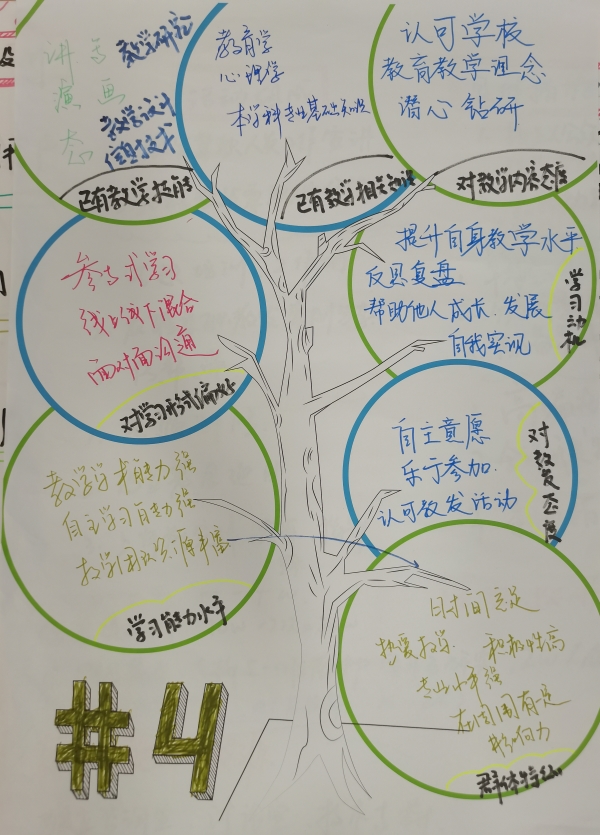 讲 写 教学研究
演 画 教学设计
态 信息技术
已有教学技能
教育学
心理学
本学科专业基础知识
已有教学相关知识
认可学校
教育教学理念
潜心钻研
对教学内容态度
参与式学习
线上线下混合
面对面沟通
对学习形式偏好
提升自身教学水平
反思复盘
帮助他人成长、发展
自我实现
学习动机
教学学术能力强
自主学习能力强
教学团队资源丰富
学习能力水平
自主意愿
乐于参加
认可教发活动
对教发态度
时间充足
热爱教学 积极性高
专业水平强
在周围有一定
影响力
群体特征
#4